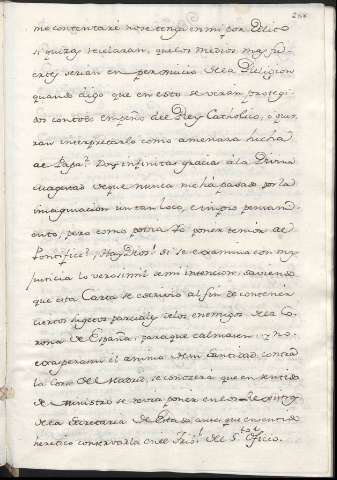 me contentaré no se tenga en mi por delito
si quizas recelaran, que los medios mas fu-
ertes serian en perjuicio de la Religion
quando digo que en esto se veran protegi-
dos con todo empeño del Rey Catholico, o quie-
ran interpretarlo como amenaza hecha
al Papa? Doy infinitas gracias à la Divina
Magestad de que nunca me há pasado por la
imaginacion un tan loco, e impio pensami-
ento; pero como podra  poner temor al
Pontifice? Hay Dios! si se examina con mas
justicia lo verosimil de mi intencion, sabiendo
que esta Carta se escrivio al fin de contener
ciertos sugetos parciales de los enemigos de la Co-
rona de España, para que calmasen, y no
exasperasen el animo de su Santidad contra
la Corte de Madrid, se conozera que en sentido
de Ministro se devia poner en los
de la Secretaria de Estado, antes que en sentido
heretico conservarla en el Trib.l del S.to Oficio.